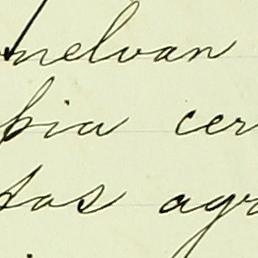 nelvan
bia cer
tas agr